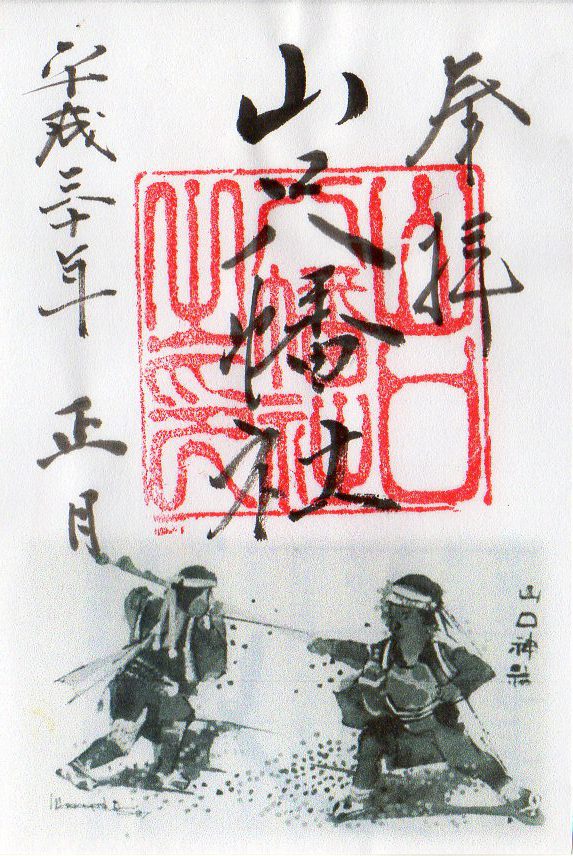 奉拝
山口八幡社
平成三十年 正月
山口
八幡社
之印
山口神社